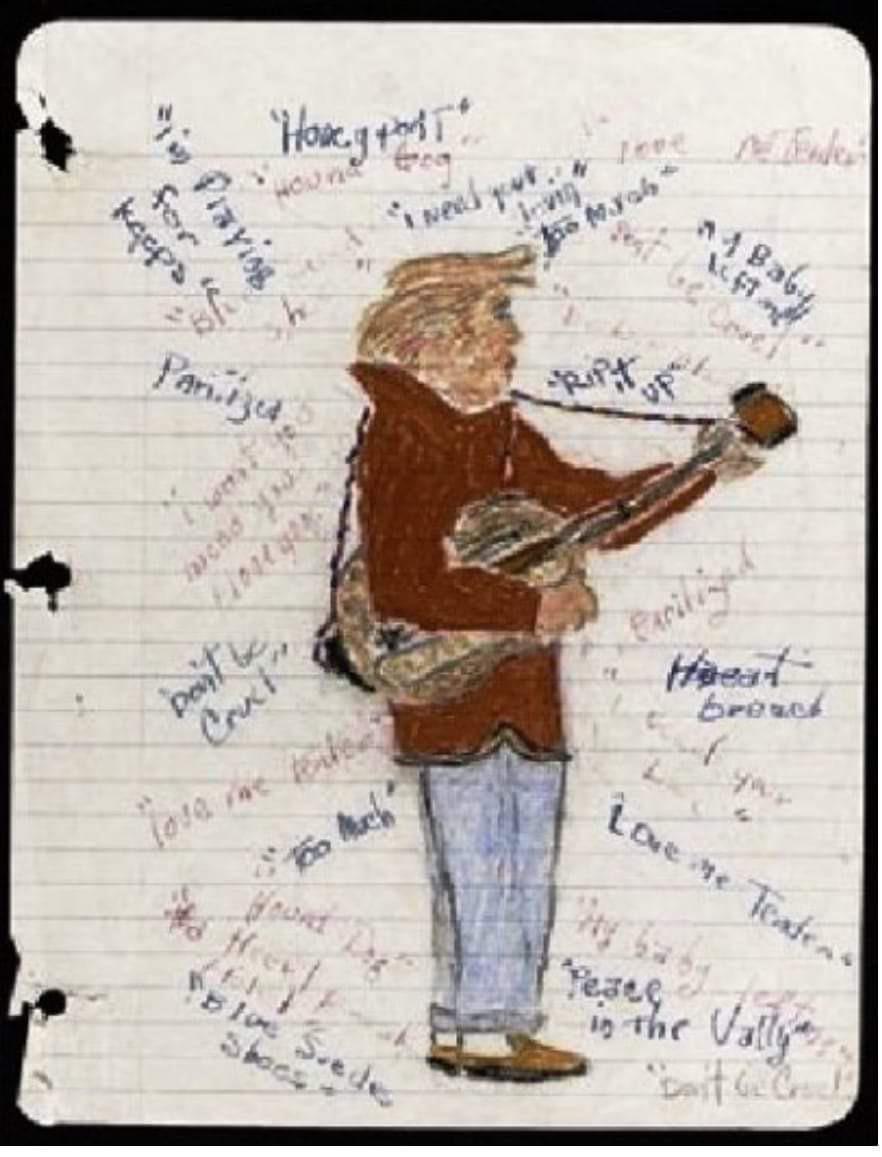 "is Playing
for
Keeps"
"Hound Dog"
love me Tender
"i need your
loving"
"Too Much"
"My Baby
Left me"
be Cruel"
"RIP it
UP"
Parilized
"i want you
need you
i love you"
parilized
"Don't be
Cruel"
Heart
breack
your
"love me tender"
"Too Much"
Love me Tender"
"Hound Dog"
"Blue Suede
Shoes"
"My baby
left me"
"Peace
in the Vally"
"Don't be Cruel"